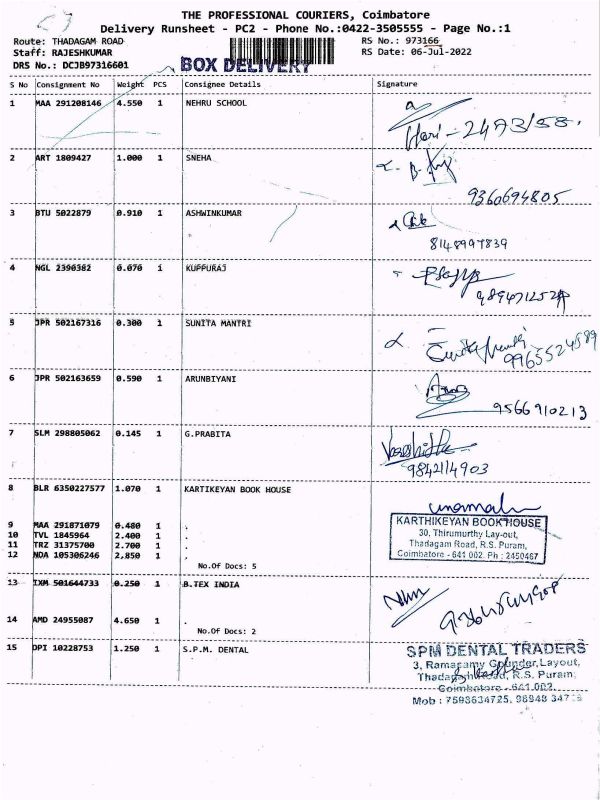 THE PROFESSIONAL COURIERS, Coimbatore
Delivery Runsheet - PC2 - Phone No.:0422-3505555 - Page No.:1
Route: THADAGAM ROAD RS No.: 973166
Staff: RAJESHKUMAR RS Date: 06-Jul-2022
DRS No.: DCJB97316601 BOX DELIVERY
S No Consignment No Weight PCS Consignee Details Signature
1 MAA 291208146 4.550 1 NEHRU SCHOOL
Hari - 2473/58.
2 ART 1809427 1.000 1 SNEHA
9360694805
3 BTU 5022879 0.910 1 ASHWINKUMAR
8148997839
4 NGL 2390382 0.070 1 KUPPURAJ
5 JPR 502167316 0.300 1 SUNITA MANTRI
9965524589
6 JPR 502163659 0.590 1 ARUNBIYANI
9566910213
7 SLM 298805062 0.145 1 G.PRABITA
9842114903
8 BLR 6350227577 1.070 1 KARTIKEYAN BOOK HOUSE
KARTHIKEYAN BOOK HOUSE
30, Thirumurthy Lay-out,
Thadagam Road, R.S. Puram,
Coimbatore - 641 002. Ph : 2450467
9 MAA 291871079 0.480 1 .
10 TVL 1845964 2.400 1 .
11 TRZ 31375700 2.700 1 .
12 NDA 105306246 2.850 1 .
No.Of Docs: 5
13 IXM 501644733 0.250 1 B.TEX INDIA
14 AMD 24955087 4.650 1 .
No.Of Docs: 2
15 DPI 10228753 1.250 1 S.P.M. DENTAL
SPM DENTAL TRADERS
3, Ramasamy Gounder Layout,
Thadagam Road, R.S. Puram,
Coimbatore - 641 002.
Mob : 7598634725, 98948